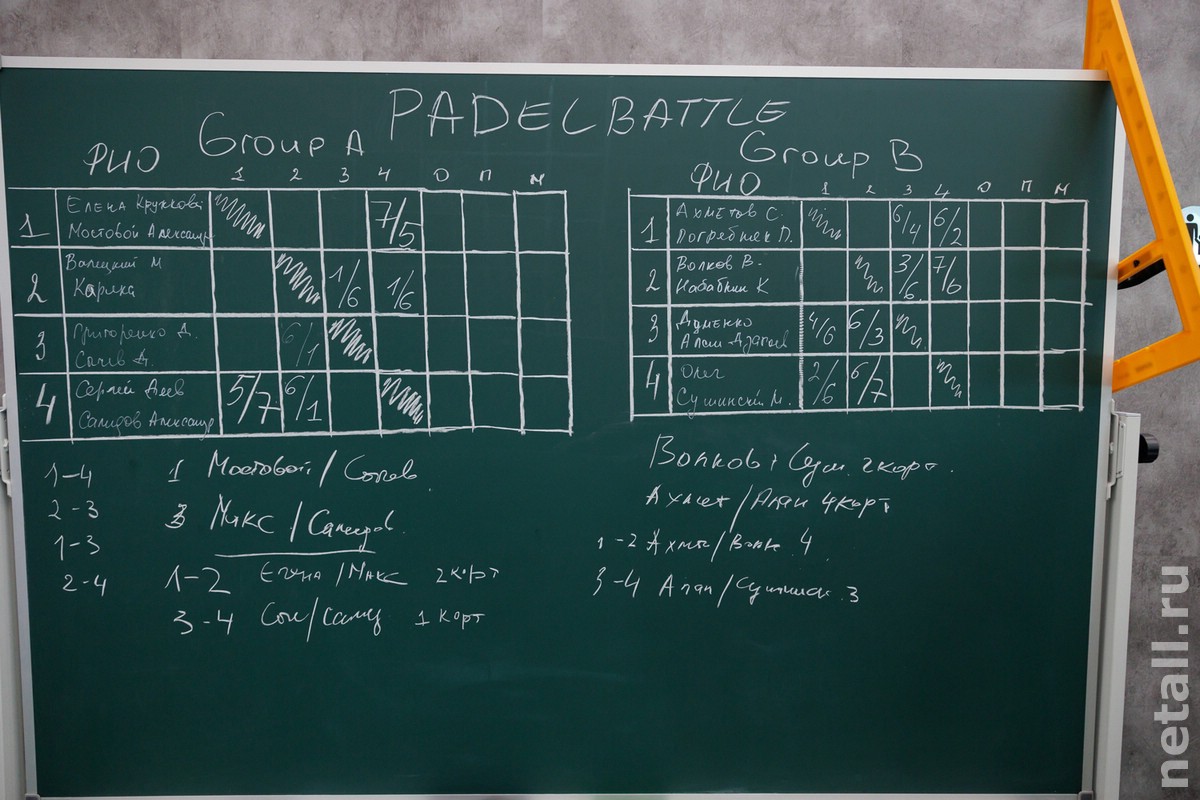 PADEL BATTLE
Group A
ФИО 1 2 3 4 О П М
1 Елена Кружкова 7/5
Мостовой Александр
2 Валецкий М 1/6 1/6
Каряка
3 Григоренко Д. 6/1
Сычев Д.
4 Сергей 5/7 6/1
Сапидов Александр
1-4 1 Мостовой/
2-3 3 Макс/
1-3
2-4 1-2 Елена/Макс 2 корт
3-4 1 корт
Group B
ФИО 1 2 3 4 О П М
1 Ахметов С. 6/4 6/2
Погребняк П.
2 Волков В. 3/6 7/6
Набабкин К
3 Думенко 4/6 6/3
Алан
4 Олег 2/6 6/7
Сушинский М.
Волков 2 корт.
Ахмет/Алан 4 корт
1-2 4
3-4 Алан/ 3
netall.ru